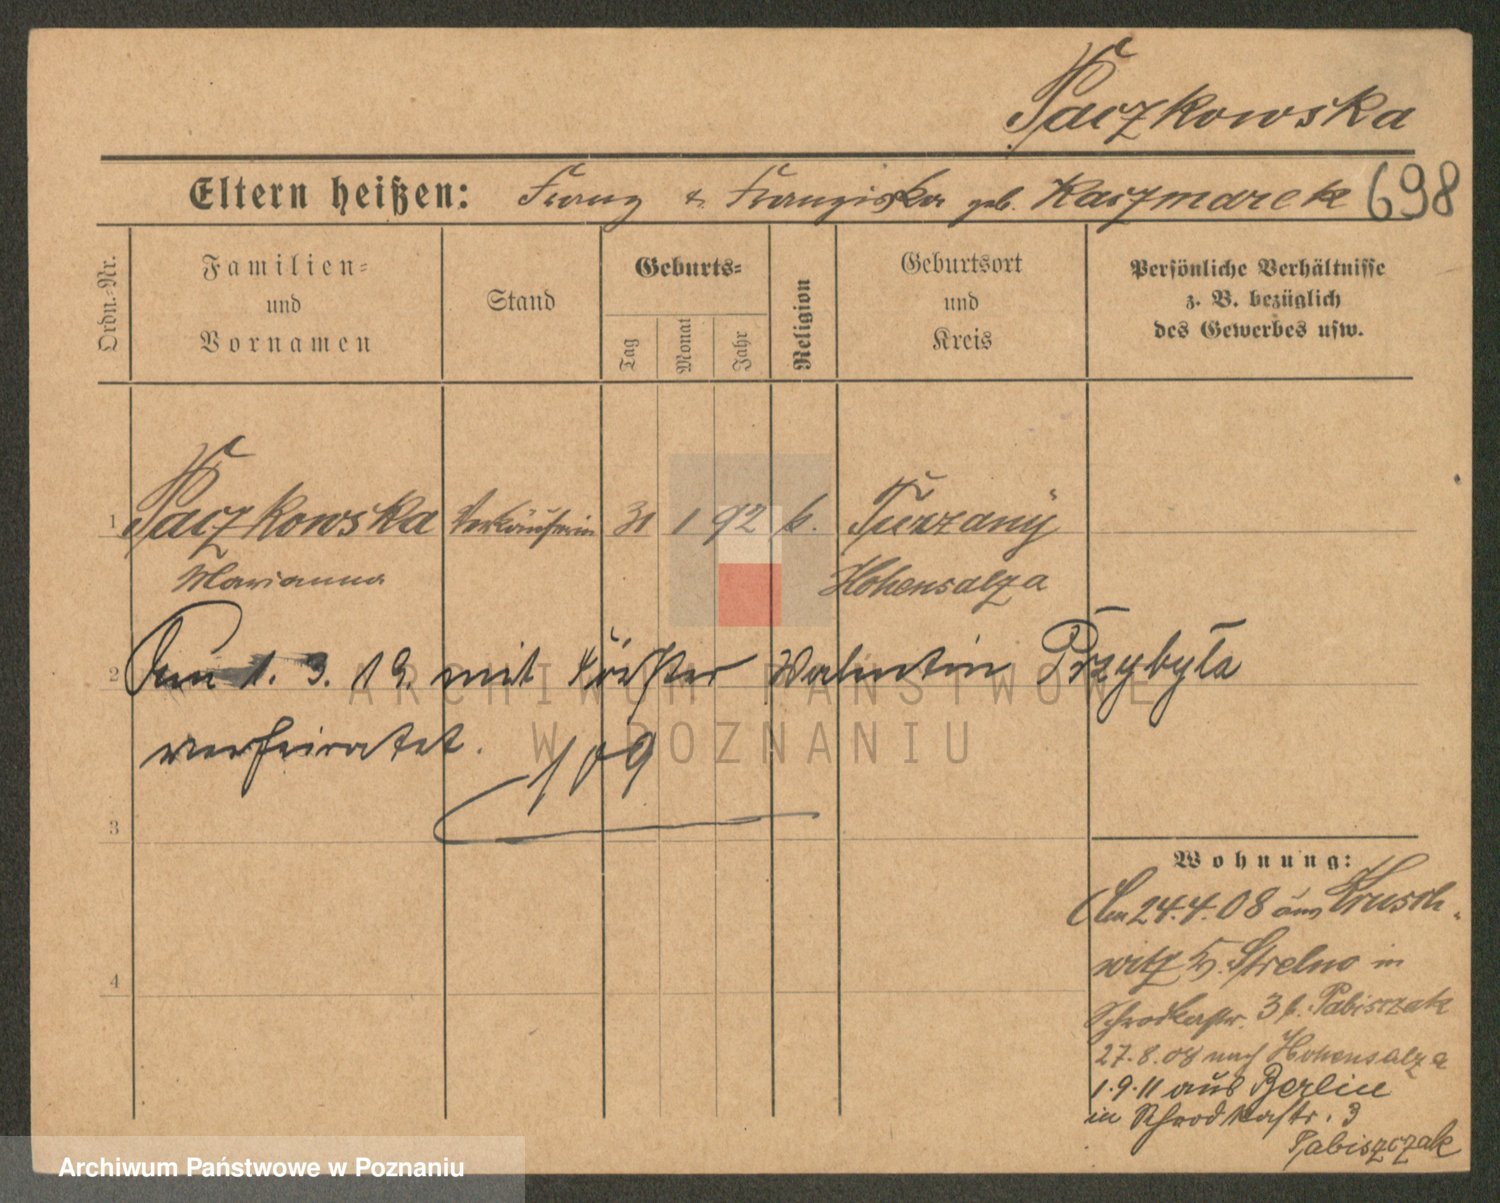 Paczkowska
Eltern heißen: Franz & Franziska geb. Kaczmarek 698
Ordn.-Nr.
Familien- und Vornamen
Stand
Geburts-
Tag Monat Jahr
Religion
Geburtsort und Kreis
Persönliche Verhältnisse
z. B. bezüglich
des Gewerbes usw.
1 Paczkowska Verkäuferin 31 1 92 k. Tuczany
Marianna Hohensalza
2 Am 1. 3. 19. mit Förster Walentin Przybyła
verheiratet.
109
3
Wohnung:
Am 24.4.08 aus Krusch-
witz Kr. Strelno in
4
Schrodkastr. 3 b. Pabiszczak
27.8.08 nach Hohensalza
1.9.11 aus Berlin
in Schrodkastr. 3
Pabiszczak
ARCHIWUM PAŃSTWOWE
W POZNANIU
Archiwum Państwowe w Poznaniu